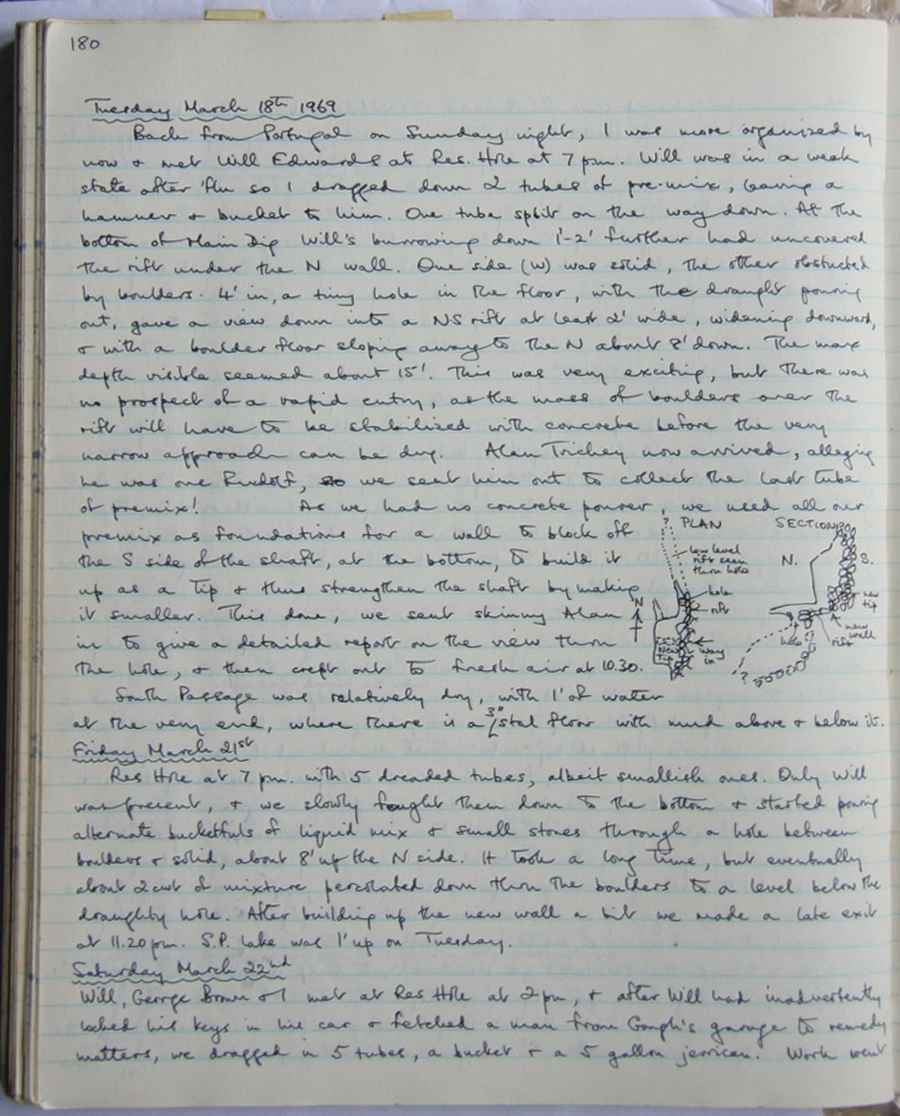 180
Tuesday March 18th 1969
Back from Portugal on Sunday night, I was more organized by
now & met Will Edwards at Res. Hole at 7 pm. Will was in a weak
state after 'flu so I dragged down 2 tubes of pre-mix, leaving a
hammer & bucket to him. One tube split on the way down. At the
bottom of Main Dig Will's burrowing down 1'-2' further had uncovered
the rift under the N wall. One side (W) was solid, the other obstructed
by boulders. 4' in, a tiny hole in the floor, with the draught pouring
out, gave a view down into a NS rift at least 2' wide, widening downward,
& with a boulder floor sloping away to the N about 8' down. The max
depth visible seemed about 15'. This was very exciting, but there was
no prospect of a rapid entry, as the mass of boulders over the
rift will have to be stabilized with concrete before the very
narrow approach can be dug. Alan Trickey now arrived, alleging
he was one Rudolf, so we sent him out to collect the last tube
of premix! As we had no concrete pourer, we need all our
premix as foundations for a wall to block off
the S side of the shaft, at the bottom, to build it
up as a tip & thus strengthen the shaft by making
it smaller. This done, we sent skinny Alan
in to give a detailed report on the view thru
the hole, & then crept out to fresh air at 10.30.
South Passage was relatively dry, with 1' of water
at the very end, where there is a 3" stal floor with mud above & below it.
? PLAN
low level
rift seen
thru hole
hole
rift
N
New
Tip
way
in
SECTION
N.
S.
new
tip
new
wall
hole
rift
?
Friday March 21st
Res Hole at 7 pm. with 5 dreaded tubes, albeit smallish ones. Only Will
was present, & we slowly fought them down to the bottom & started pouring
alternate bucketfuls of liquid mix & small stones through a hole between
boulders & solid, about 8' up the N side. It took a long time, but eventually
about 2 cwt of mixture percolated down thru the boulders to a level below the
draughty hole. After building up the new wall a bit we made a late exit
at 11.20 pm. S.P. Lake was 1' up on Tuesday.
Saturday March 22nd
Will, George Brown & I met at Res Hole at 2 pm, & after Will had inadvertently
locked his keys in his car & fetched a man from Gough's garage to remedy
matters, we dragged in 5 tubes, a bucket & a 5 gallon jerrican. Work went